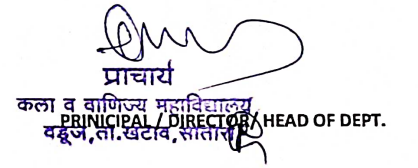 प्राचार्य
कला व वाणिज्य महाविद्यालय
PRINICIPAL / DIRECTOR/ HEAD OF DEPT.
वडूज,ता.खटाव,सातारा